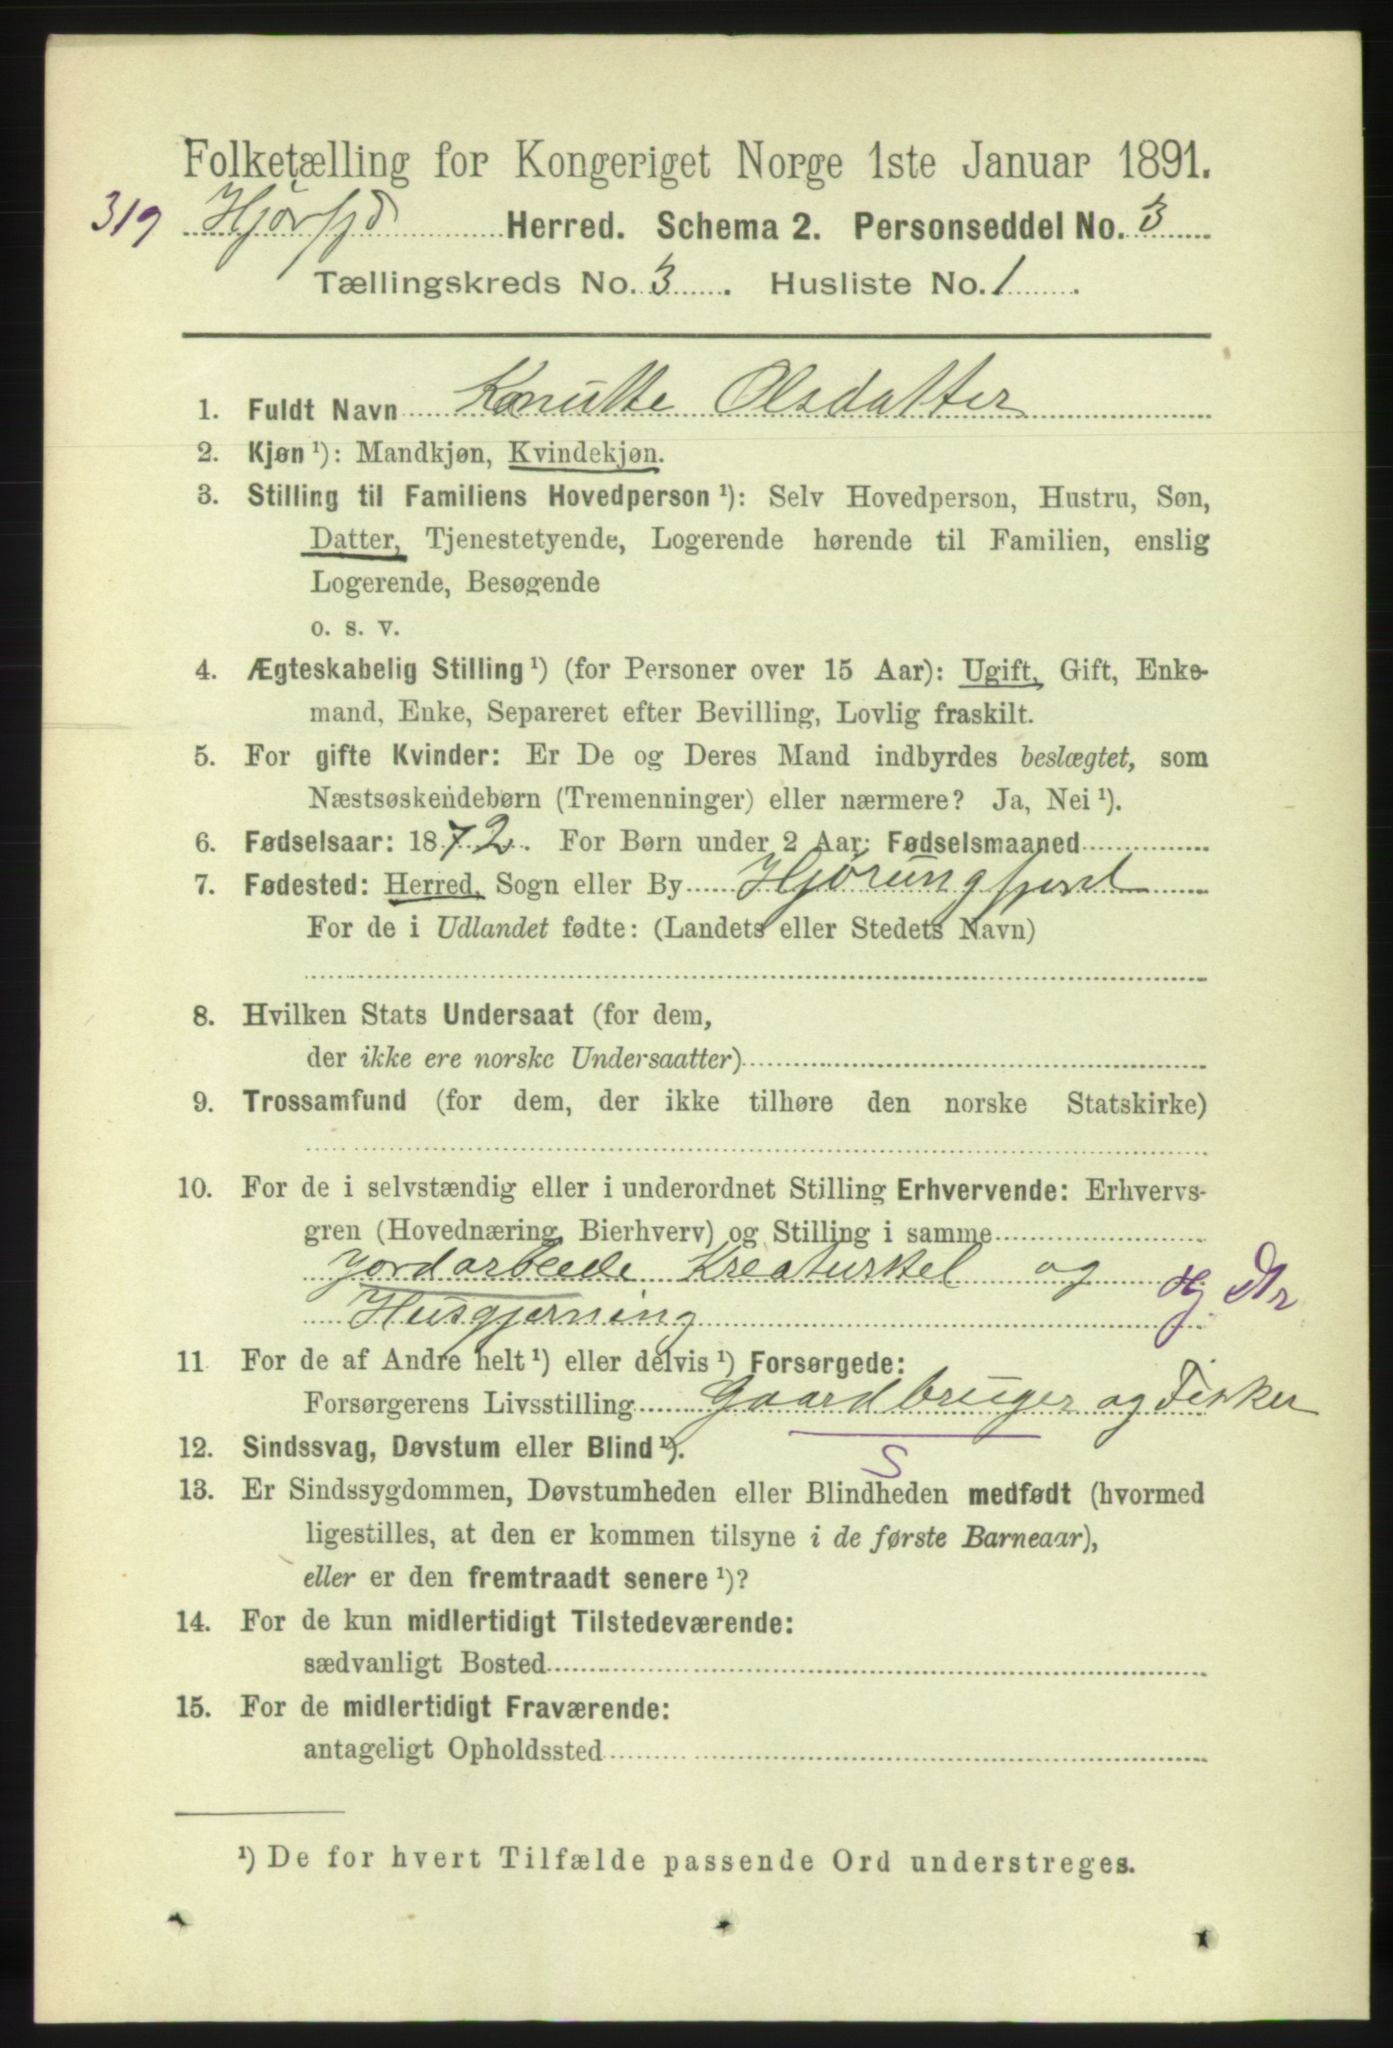 Folketælling for Kongeriget Norge 1ste Januar 1891.
319 Hjørfjd Herred. Schema 2. Personseddel No. 3
Tællingskreds No. 3. Husliste No. 1.
1. Fuldt Navn Knutte Olsdatter
2. Kjøn ¹): Mandkjøn, Kvindekjøn.
3. Stilling til Familiens Hovedperson ¹): Selv Hovedperson, Hustru, Søn,
Datter, Tjenestetyende, Logerende hørende til Familien, enslig
Logerende, Besøgende
o. s. v.
4. Ægteskabelig Stilling ¹) (for Personer over 15 Aar): Ugift, Gift, Enke-
mand, Enke, Separeret efter Bevilling, Lovlig fraskilt.
5. For gifte Kvinder: Er De og Deres Mand indbyrdes beslægtet, som
Næstsøskendebørn (Tremenninger) eller nærmere? Ja, Nei ¹).
6. Fødselsaar: 1872. For Børn under 2 Aar: Fødselsmaaned
7. Fødested: Herred, Sogn eller By Hjørungfjord
For de i Udlandet fødte: (Landets eller Stedets Navn)
8. Hvilken Stats Undersaat (for dem,
der ikke ere norske Undersaatter)
9. Trossamfund (for dem, der ikke tilhøre den norske Statskirke)
10. For de i selvstændig eller i underordnet Stilling Erhvervende: Erhvervs-
gren (Hovednæring, Bierhverv) og Stilling i samme
Jordarbeide Kreaturstel og
Husgjerning
11 For de af Andre helt ¹) eller delvis ¹) Forsørgede:
Forsørgerens Livsstilling Gaardbruger og Fisker
12. Sindssvag, Døvstum eller Blind ¹). S
13. Er Sindssygdommen, Døvstumheden eller Blindheden medfødt (hvormed
ligestilles, at den er kommen tilsyne i de første Barneaar),
eller er den fremtraadt senere ¹)?
14. For de kun midlertidigt Tilstedeværende:
sædvanligt Bosted
15. For de midlertidigt Fraværende:
antageligt Opholdssted
¹) De for hvert Tilfælde passende Ord understreges.